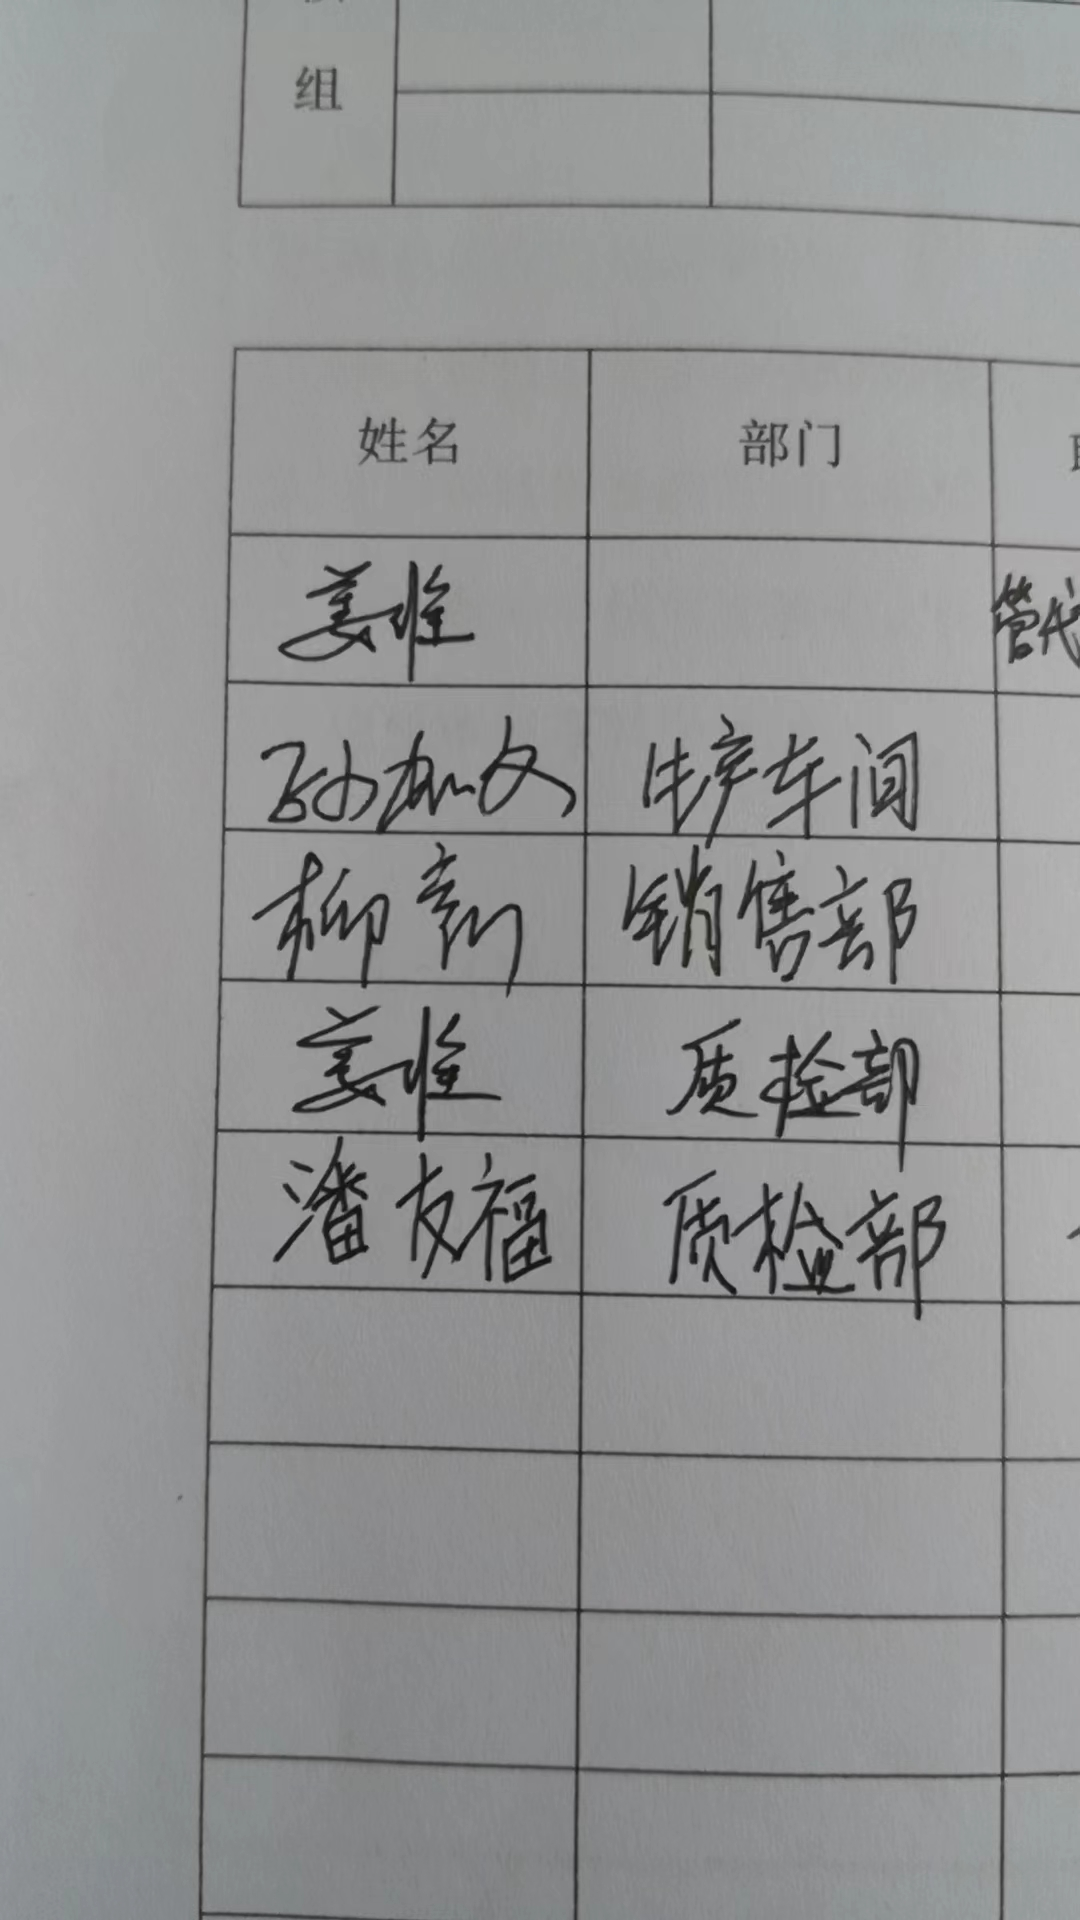 组
姓名 部门
姜维 管代
孙 文 生产车间
柳 销售部
姜维 质检部
潘友福 质检部